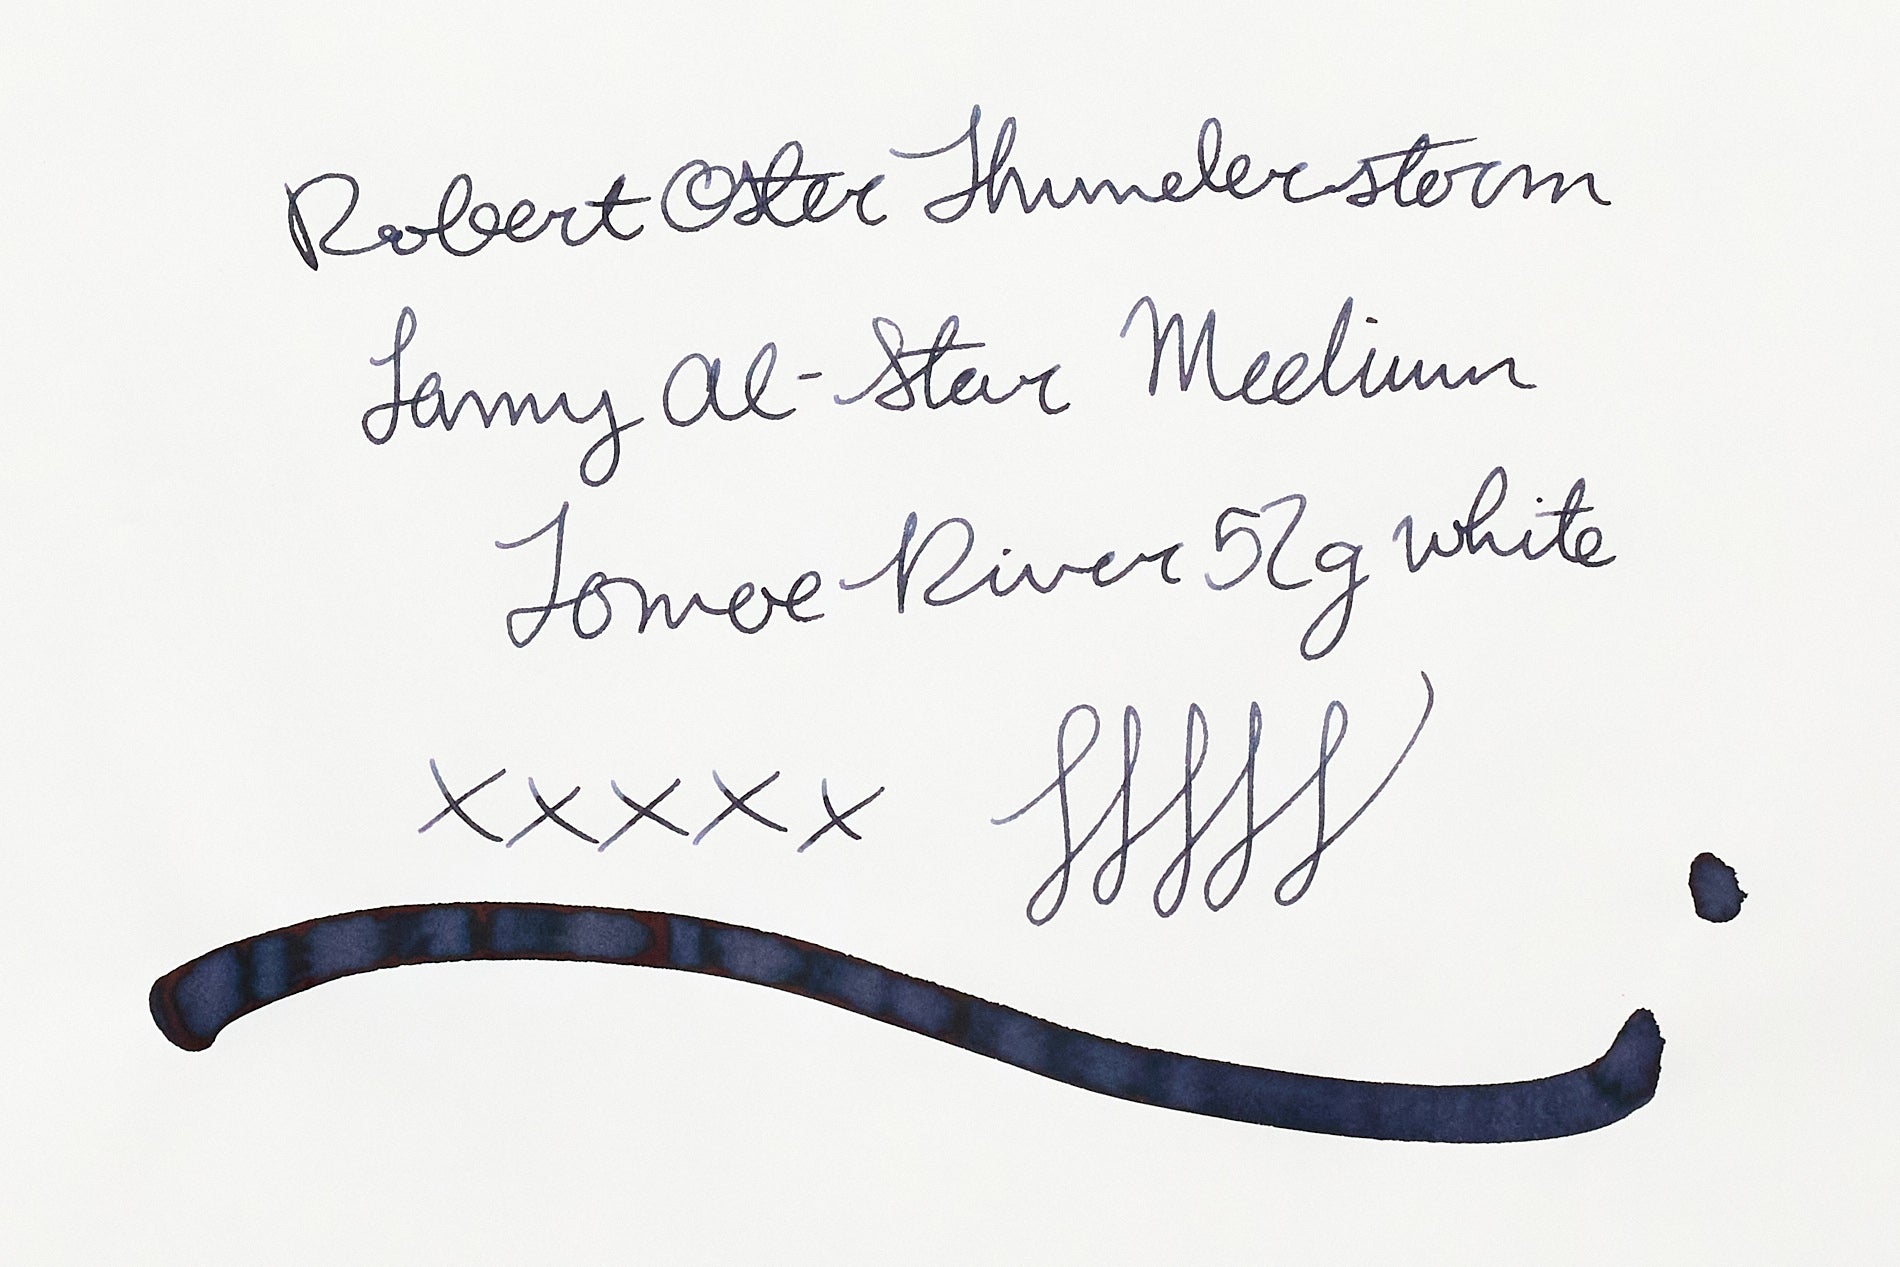 Robert Oster Thunderstorm
Lamy Al-Star Medium
Tomoe River 52g white
xxxxx fffff